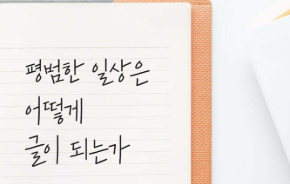 평범한 일상은
어떻게
글이 되는가